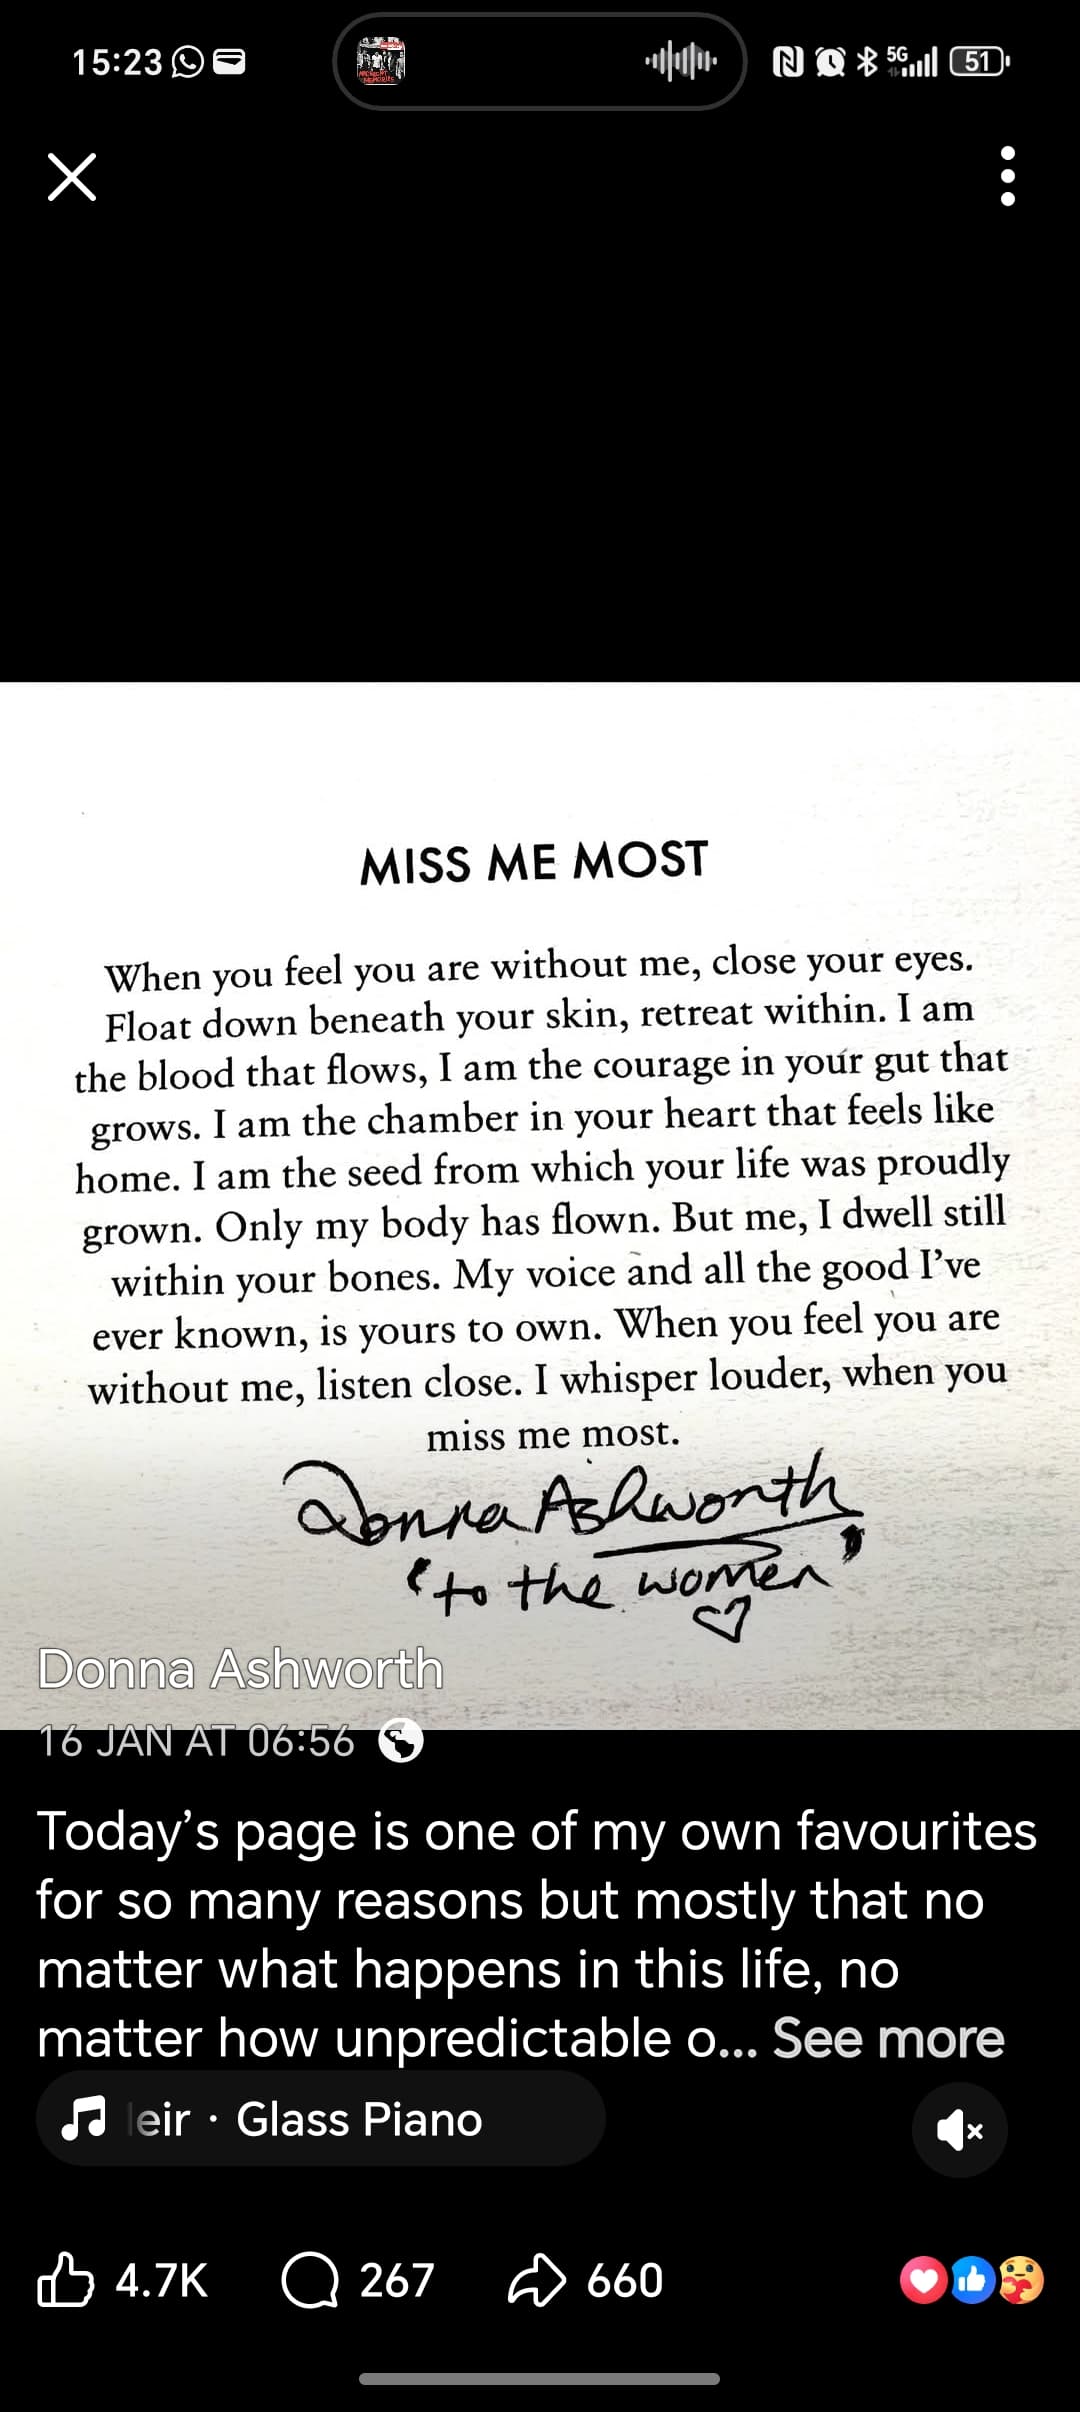 15:23
5G
51
MISS ME MOST
When you feel you are without me, close your eyes.
Float down beneath your skin, retreat within. I am
the blood that flows, I am the courage in your gut that
grows. I am the chamber in your heart that feels like
home. I am the seed from which your life was proudly
grown. Only my body has flown. But me, I dwell still
within your bones. My voice and all the good I've
ever known, is yours to own. When you feel you are
without me, listen close. I whisper louder, when you
miss me most.
Donna Ashworth
'to the women'
Donna Ashworth
16 JAN AT 06:56
Today's page is one of my own favourites
for so many reasons but mostly that no
matter what happens in this life, no
matter how unpredictable o... See more
eir · Glass Piano
4.7K 267 660